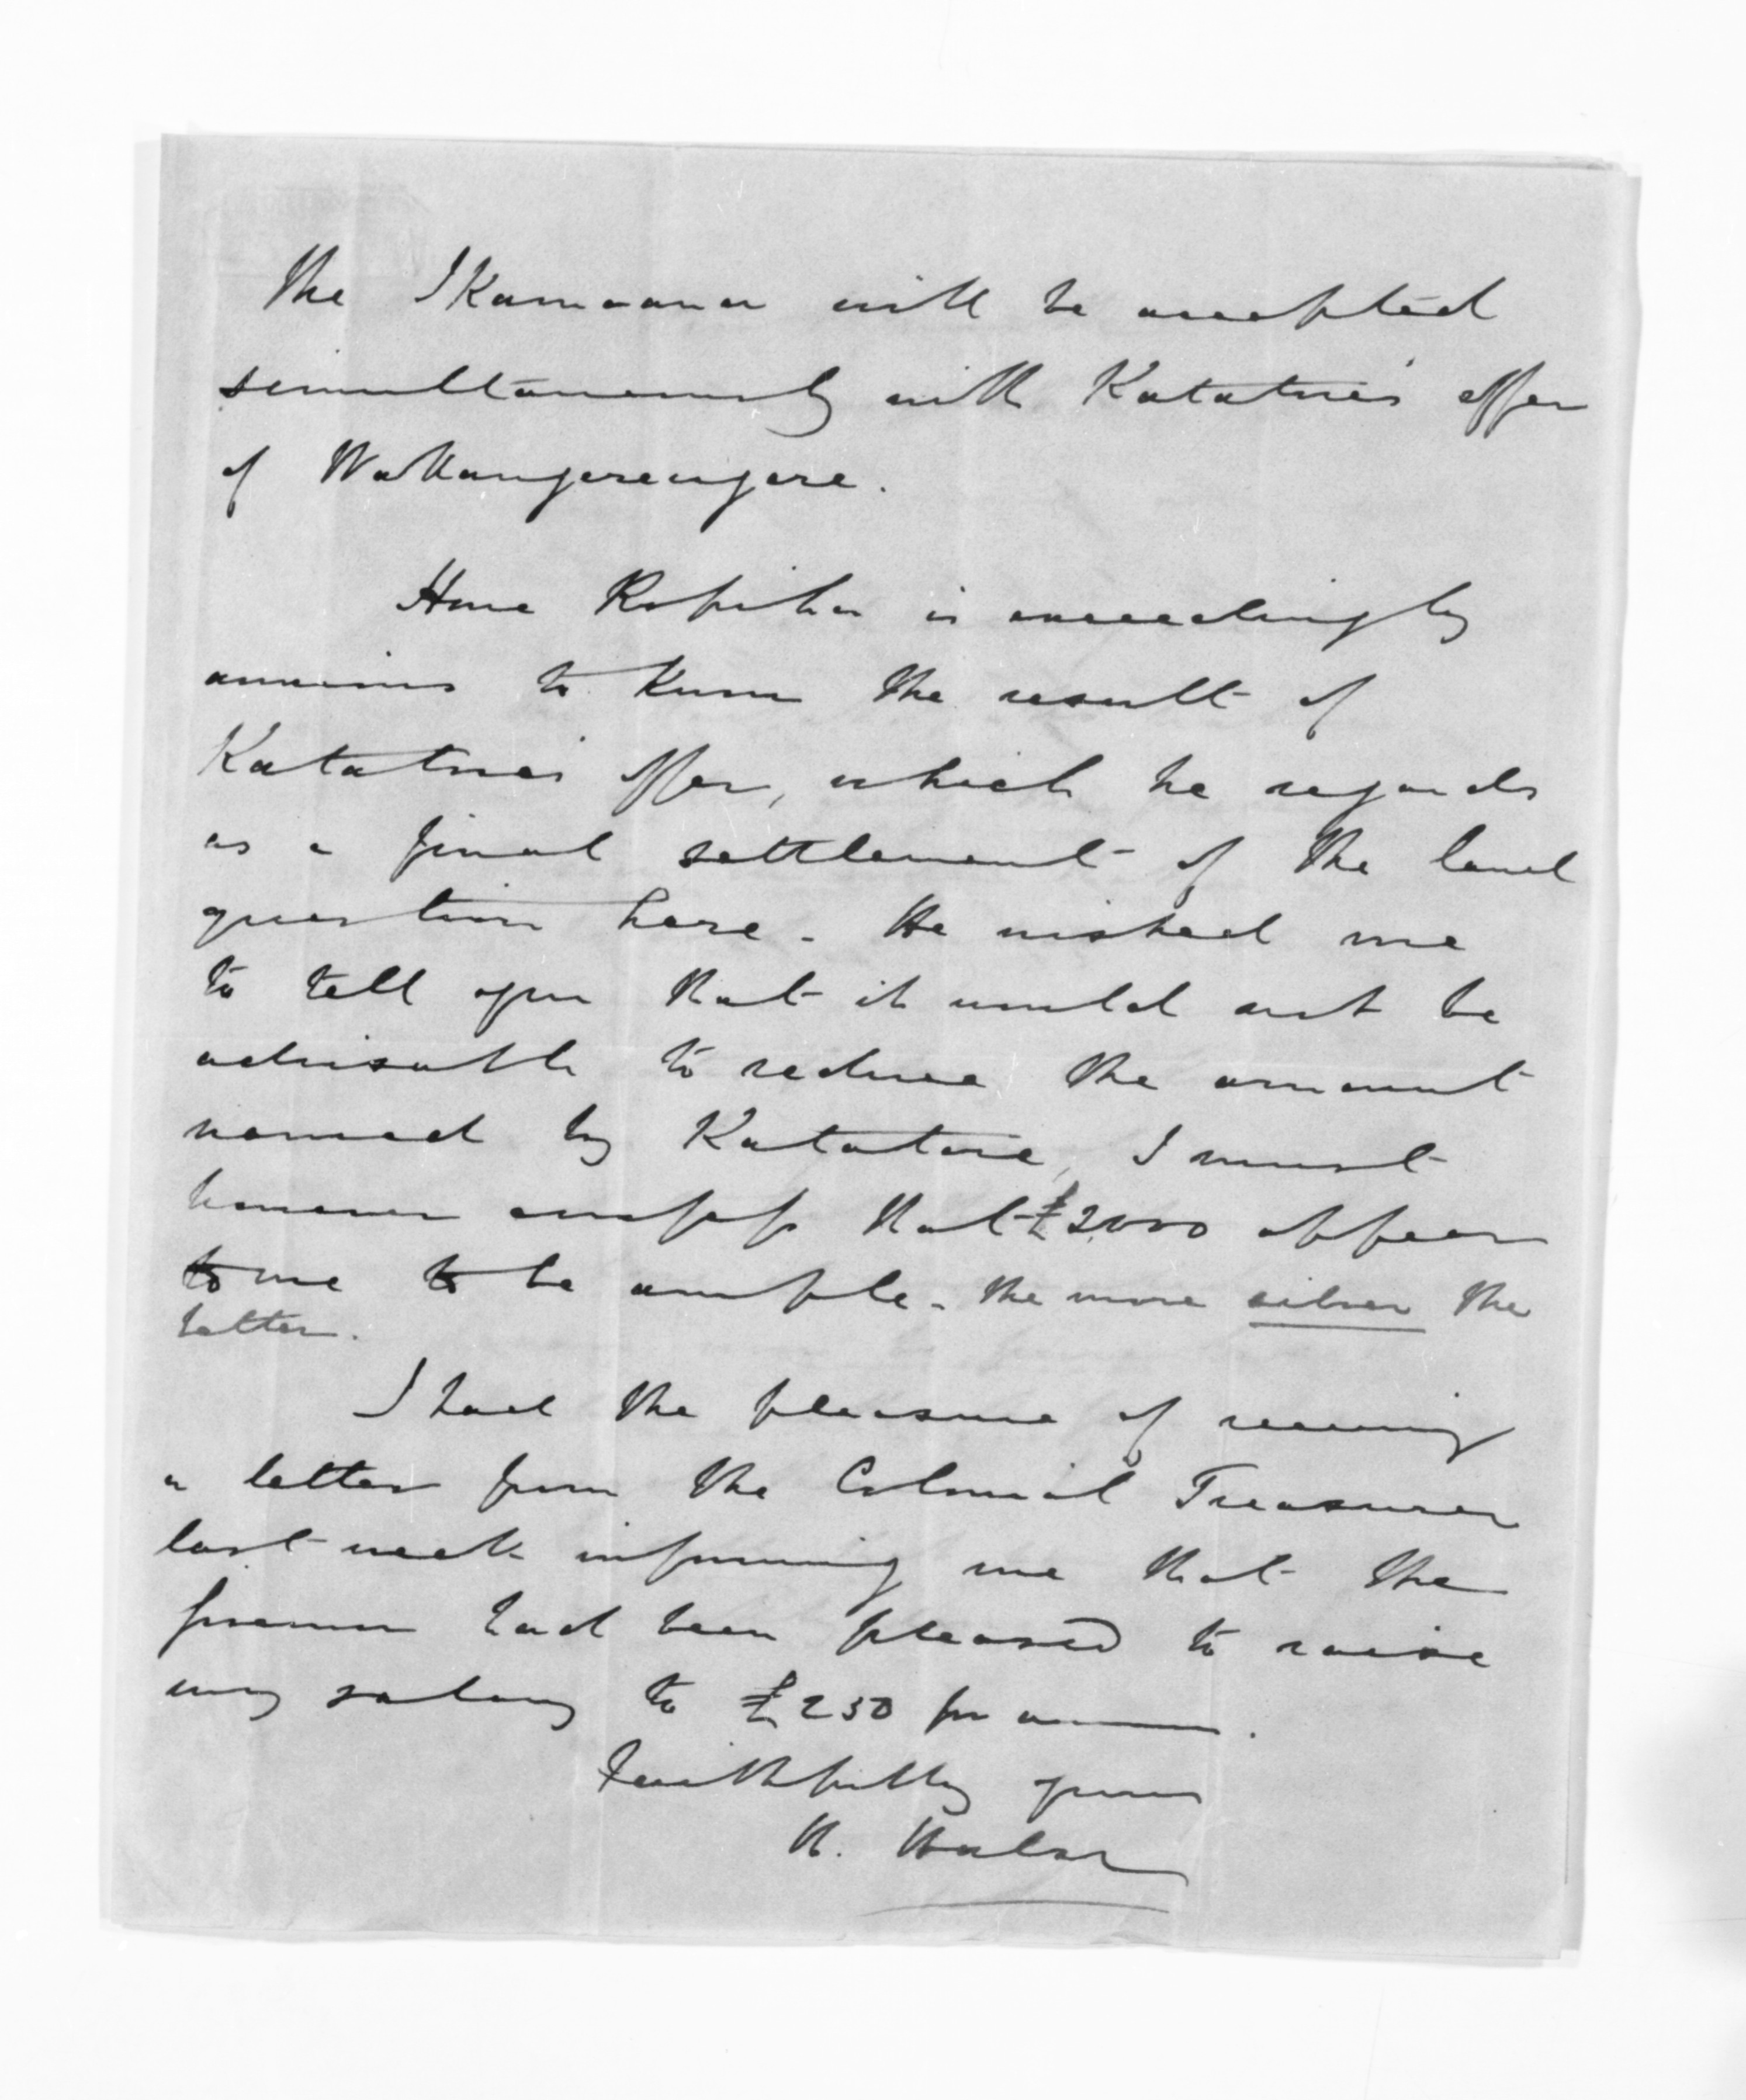 The Ikamoana will be accepted
simultaneously with Katatore's offer
of Wakangerengere.
Hone Ropiha is exceedingly
anxious to know the result of
Katatore's offer, which he regards
as a final settlement of the land
question here. He wished me
to tell you that it would not be
advisable to reduce the amount
named by Katatore, I must
however confess that £2,000 appears
to me to be ample. The more silver the
better.
I had the pleasure of receiving
a letter from the Colonial Treasurer
last week informing me that the
Governor had been pleased to raise
my salary to £250 per annum.
Faithfully yours
H. Halse